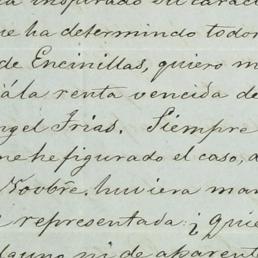 inspirado su carac
ha determindo todo
de Encinillas, quiero m
ála renta vencida de
ngel Frias. Siempre
me he figurado el caso, d
Novbre. huviera man
representada: ¿quie
alguno ni de aparent